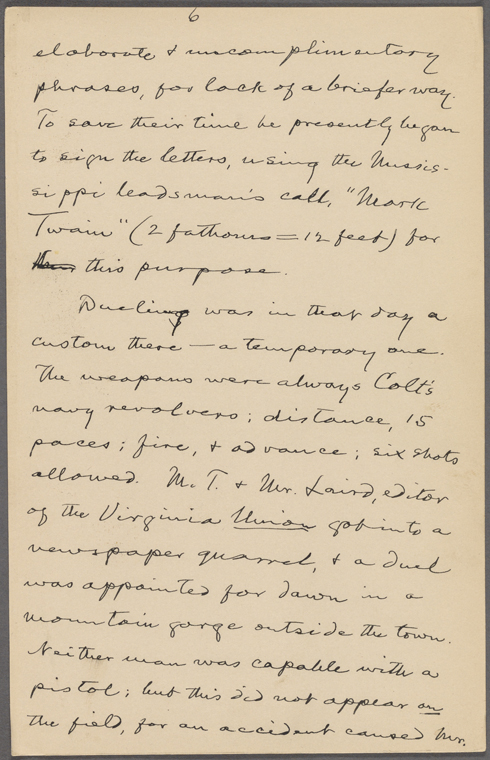 6
elaborate & uncomplimentary
phrases, for lack of a briefer way.
To save their time he presently began
to sign the letters, using the Missis-
sippi leadsman's call, "Mark
Twain" (2 fathoms = 12 feet) for
this purpose.
Dueling was in that day a
custom there — a temporary one.
The weapons were always Colt's
navy revolvers; distance, 15
paces; fire, & advance; six shots
allowed. M. T. & Mr. Laird, editor
of the Virginia Union got into a
newspaper quarrel, & a duel
was appointed for dawn in a
mountain gorge outside the town.
Neither man was capable with a
pistol; but this did not appear on
the field, for an accident caused Mr.